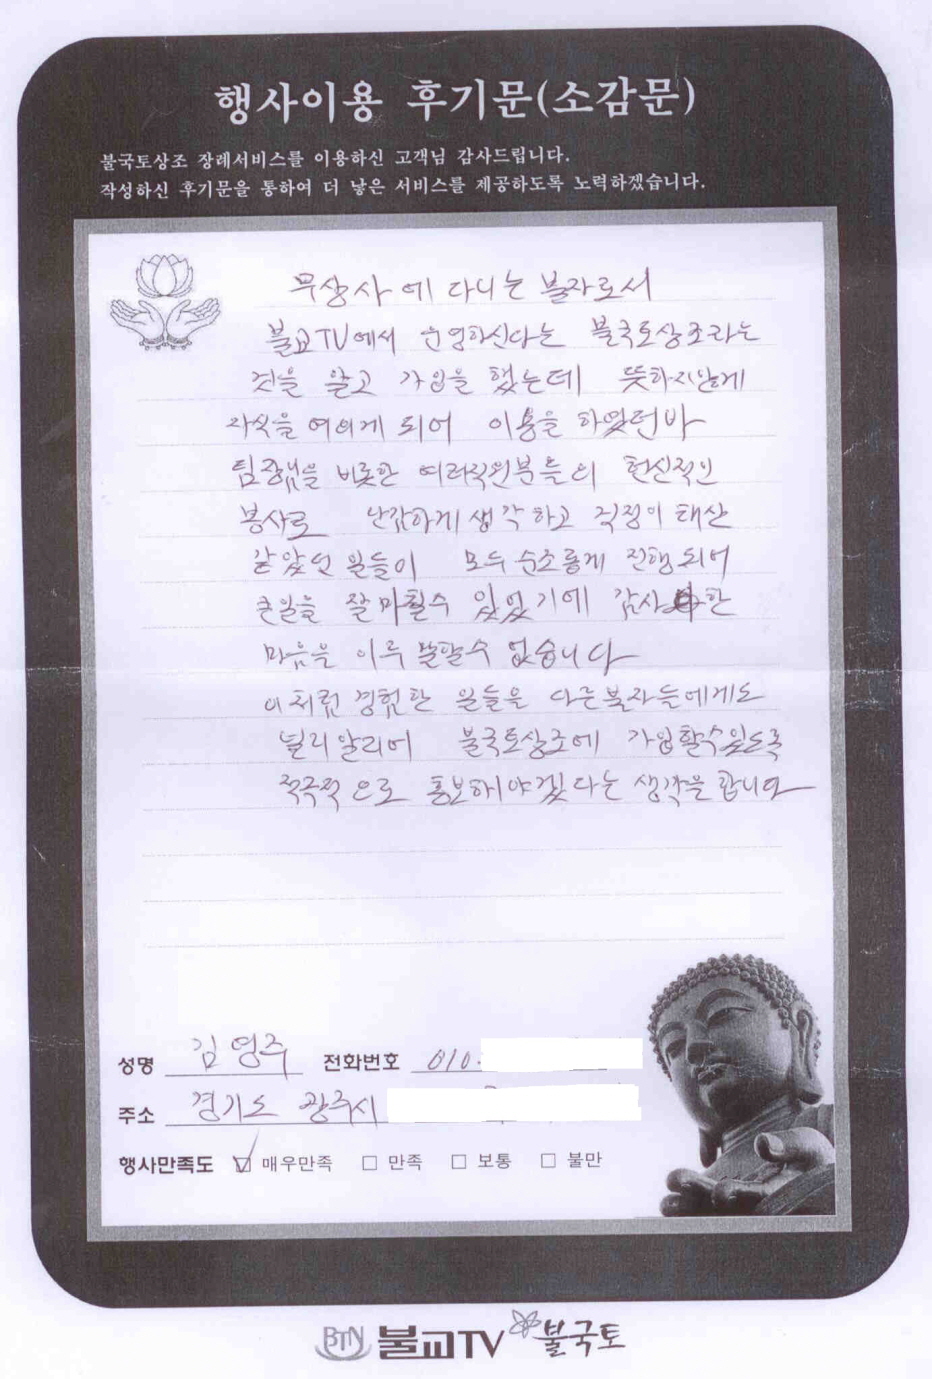 행사이용 후기문(소감문)
불국토상조 장례서비스를 이용하신 고객님 감사드립니다.
작성하신 후기문을 통하여 더 낳은 서비스를 제공하도록 노력하겠습니다.
무상사에 다니는 불자로서
불교TV에서 운영하신다는 불국토상조라는
것을 알고 가입을 했는데 뜻하지않게
자식을 여의게 되어 이용을 하였던바
팀장님을 비롯한 여러직원분들의 헌신적인
봉사로 난감하게 생각하고 걱정이 태산
같았던 일들이 모두 순조롭게 진행되어
큰일을 잘 마칠수 있었기에 감사한
마음을 이루 말할수 없습니다
이처럼 경험한 일들을 다른불자들에게도
널리알리어 불국토상조에 가입할수있도록
적극적으로 홍보해야겠다는 생각을 합니다
성명 김영주 전화번호 010.
주소 경기도 광주시
행사만족도 ☑ 매우만족 □ 만족 □ 보통 □ 불만
BTN 불교TV 불국토